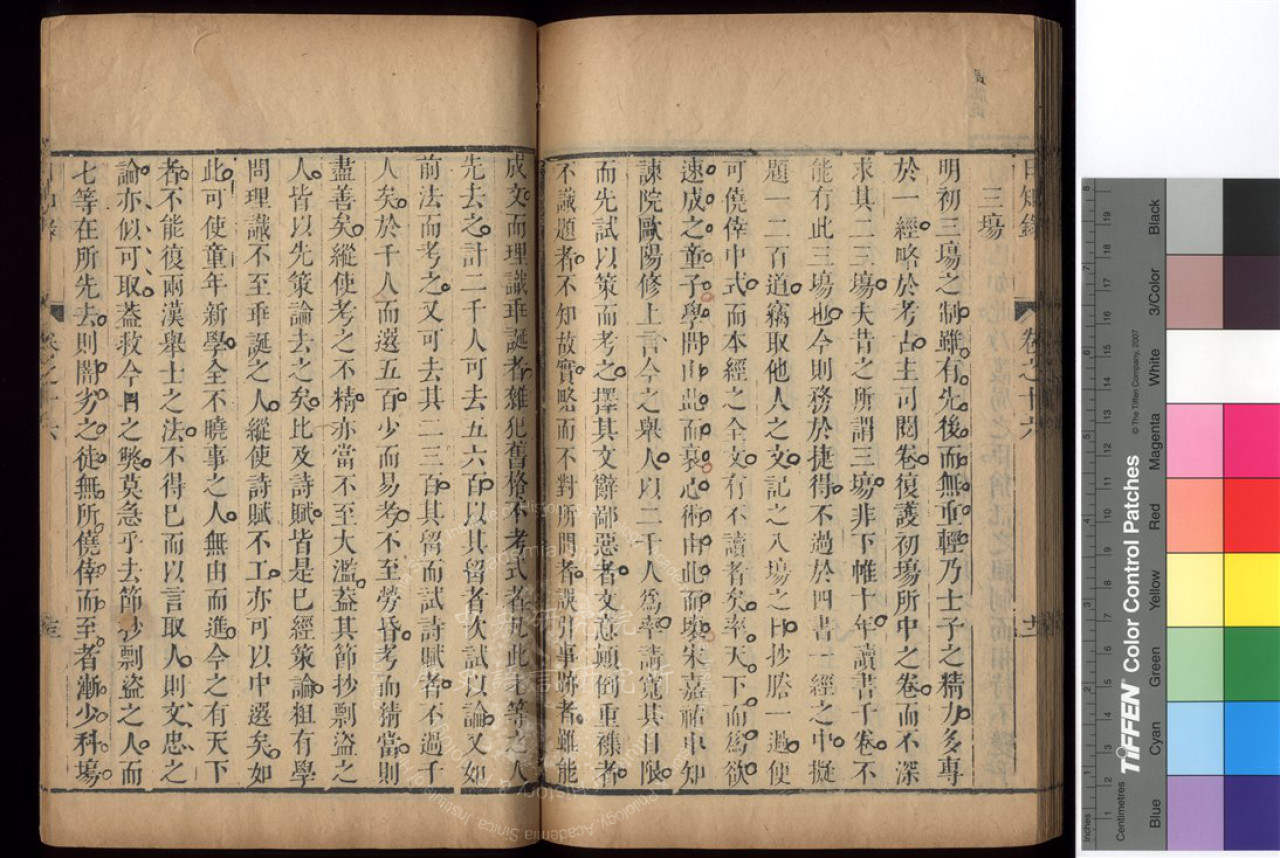 日知錄 卷之十六
三場
明初三場之制雖有先後而無重輕乃士子之精力多專
於一經略於考古主司閱卷復護初場所中之卷而不深
求其二三場夫昔之所謂三場非下帷十年讀書千卷不
能有此三場也今則務於捷得不過於四書一經之中擬
題一二百道竊取他人之文記之入場之日抄謄一過便
可僥倖中式而本經之全文有不讀者矣率天下而爲欲
速成之童子學問由此而衰心術由此而壞宋嘉祐中知
諫院歐陽修上言今之舉人以二千人爲率請寬其日限
而先試以策而考之擇其文辭鄙惡者文意顛倒重襍者
不識題者不知故實略而不對所問者誤引事跡者雖能
成文而理識乖誕者雜犯舊格不考式者凡此七等之人
先去之計二千人可去五六百以其留者次試以論又如
前法而考之又可去其二三百其留而試詩賦者不過千
人矣於千人而選五百少而易考不至勞昏考而精當則
盡善矣縱使考之不精亦當不至大濫蓋其節抄剽盜之
人皆以先策論去之矣比及詩賦皆是已經策論粗有學
問理識不至乖誕之人縱使詩賦不工亦可以中選矣如
此可使童年新學全不曉事之人無由而進今之有天下
者不能復兩漢舉士之法不得已而以言取人則文忠之
論亦似可取蓋救今日之弊莫急乎去節抄剽盜之人而
七等在所先去則闇劣之徒無所僥倖而至者漸少科場
Inches
Centimetres
TIFFEN Color Control Patches
© The Tiffen Company, 2007
Blue Cyan Green Yellow Red Magenta White 3/Color Black